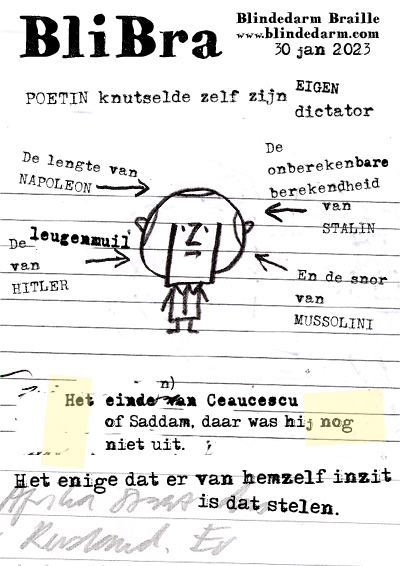 BliBra
Blindedarm Braille
www.blindedarm.com
30 jan 2023
POETIN knutselde zelf zijn EIGEN
dictator
De lengte van
NAPOLEON
De
onberekenbare
berekendheid
van
STALIN
De leugenmuil
van
HITLER
'Z'
En de snor
van
MUSSOLINI
n)
Het einde van Ceaucescu
of Saddam, daar was hij nog
niet uit.
Het enige dat er van hemzelf inzit
is dat stelen.
Rusland. Er